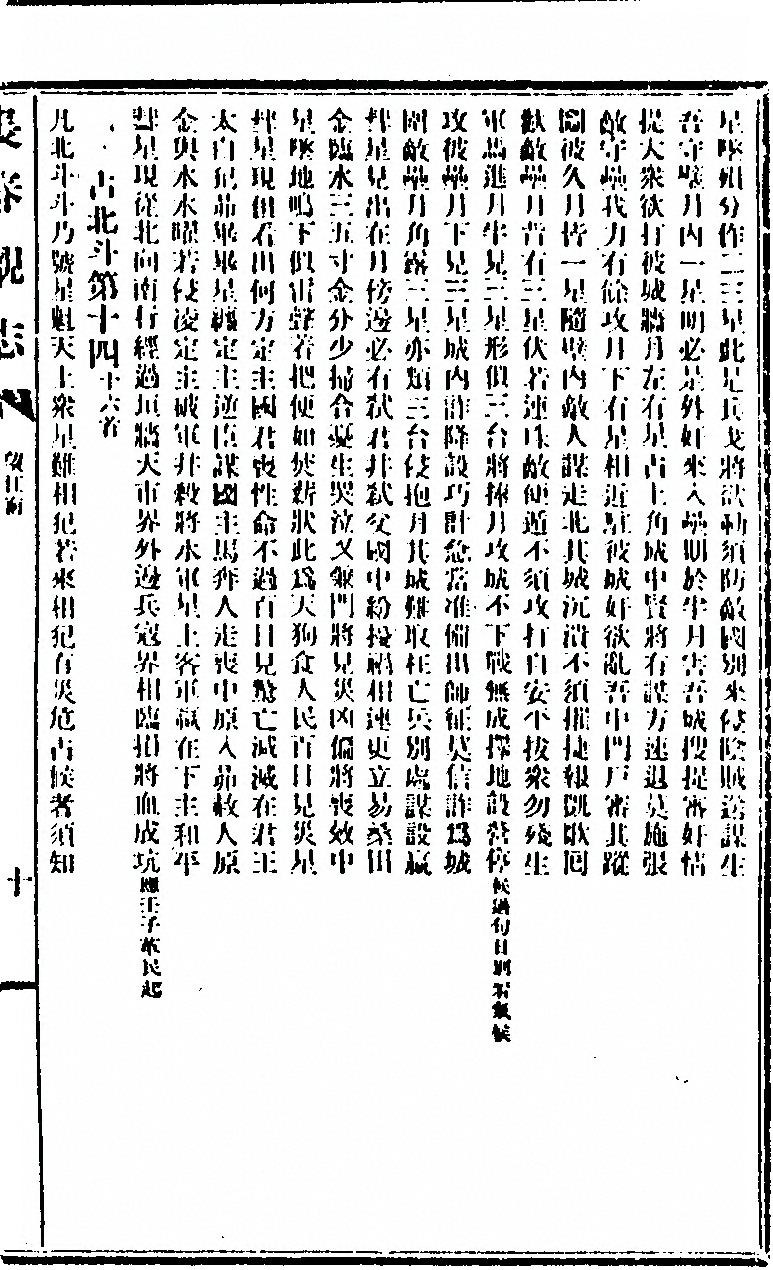 星墜爼分作二三星此是兵戈將欲動須防敵國別來侵陰賊送謀生
吾守壁月內一星明必是外奸來入壘期於半月害吾城搜提審奸情
提大衆欲打彼城牆月左有星占上角城中賢將有謀方速退莫施張
敵守壘我力有餘攻月下有星相近駐彼城奸欲亂吾中門戶審其蹤
圍彼久月皆一星隨壁內敵人謀走北其城沉潰不須摧捷報凱歌回
獻敵壘月背有三星伏若連珠敵便遁不須攻打自安平拔衆勿殘生
軍馬進月生見三星形似三台將捧月攻城不下戰無成擇地設營停候過旬日別看氣候
攻彼壘月下見三星城內詐降設巧計急當准備出師征莫信詐爲城
圍敵壘月角露三星亦類三台侵抱月其城難取枉亡兵別處謀設贏
彗星見出在月傍邊必有弑君并弑父國中紛擾禍相連更立易桑田
金臨水三五寸金分少掃合憂生哭泣又兼門將見災凶偏將喪效中
星墜地鳴下似雷聲若把便如焚薪狀此爲天狗食人民百日見災星
彗星現但看出何方定主國君喪性命不過百日見驚亡減滅在君王
太白犯昴畢畢星纏定主逆臣謀國主馬奔人走喪中原入昴赦人原
金與水水曜若侵凌定主破軍并殺將水軍星上客軍贏在下主和平
彗星現從北向南行經過垣牆天市界外邊兵寇界相臨損將血成坑應王子政民起
占北斗第十四十六首
凡北斗斗乃號星魁天上衆星難相犯若來相犯有災危占候者須知
志
望江南
十